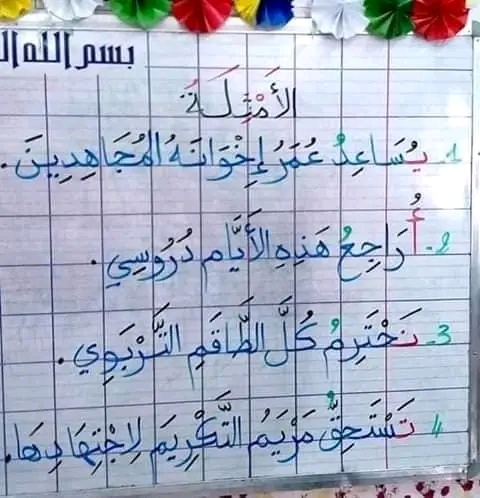 بسم الله ال
الأَمْثِلَةُ
1. يُسَاعِدُ عُمَرُ إِخْوَانَهُ المُجَاهِدِينَ.
2- أُرَاجِعُ هَذِهِ الأَيَّام دُرُوسِي.
3- نَحْتَرِمُ كُلَّ الطَّاقَمِ التَّرْبَوِي.
4/ تَسْتَحِقُّ مَرْيَمُ التَّكْرِيمَ لِاجْتِهَادِهَا.